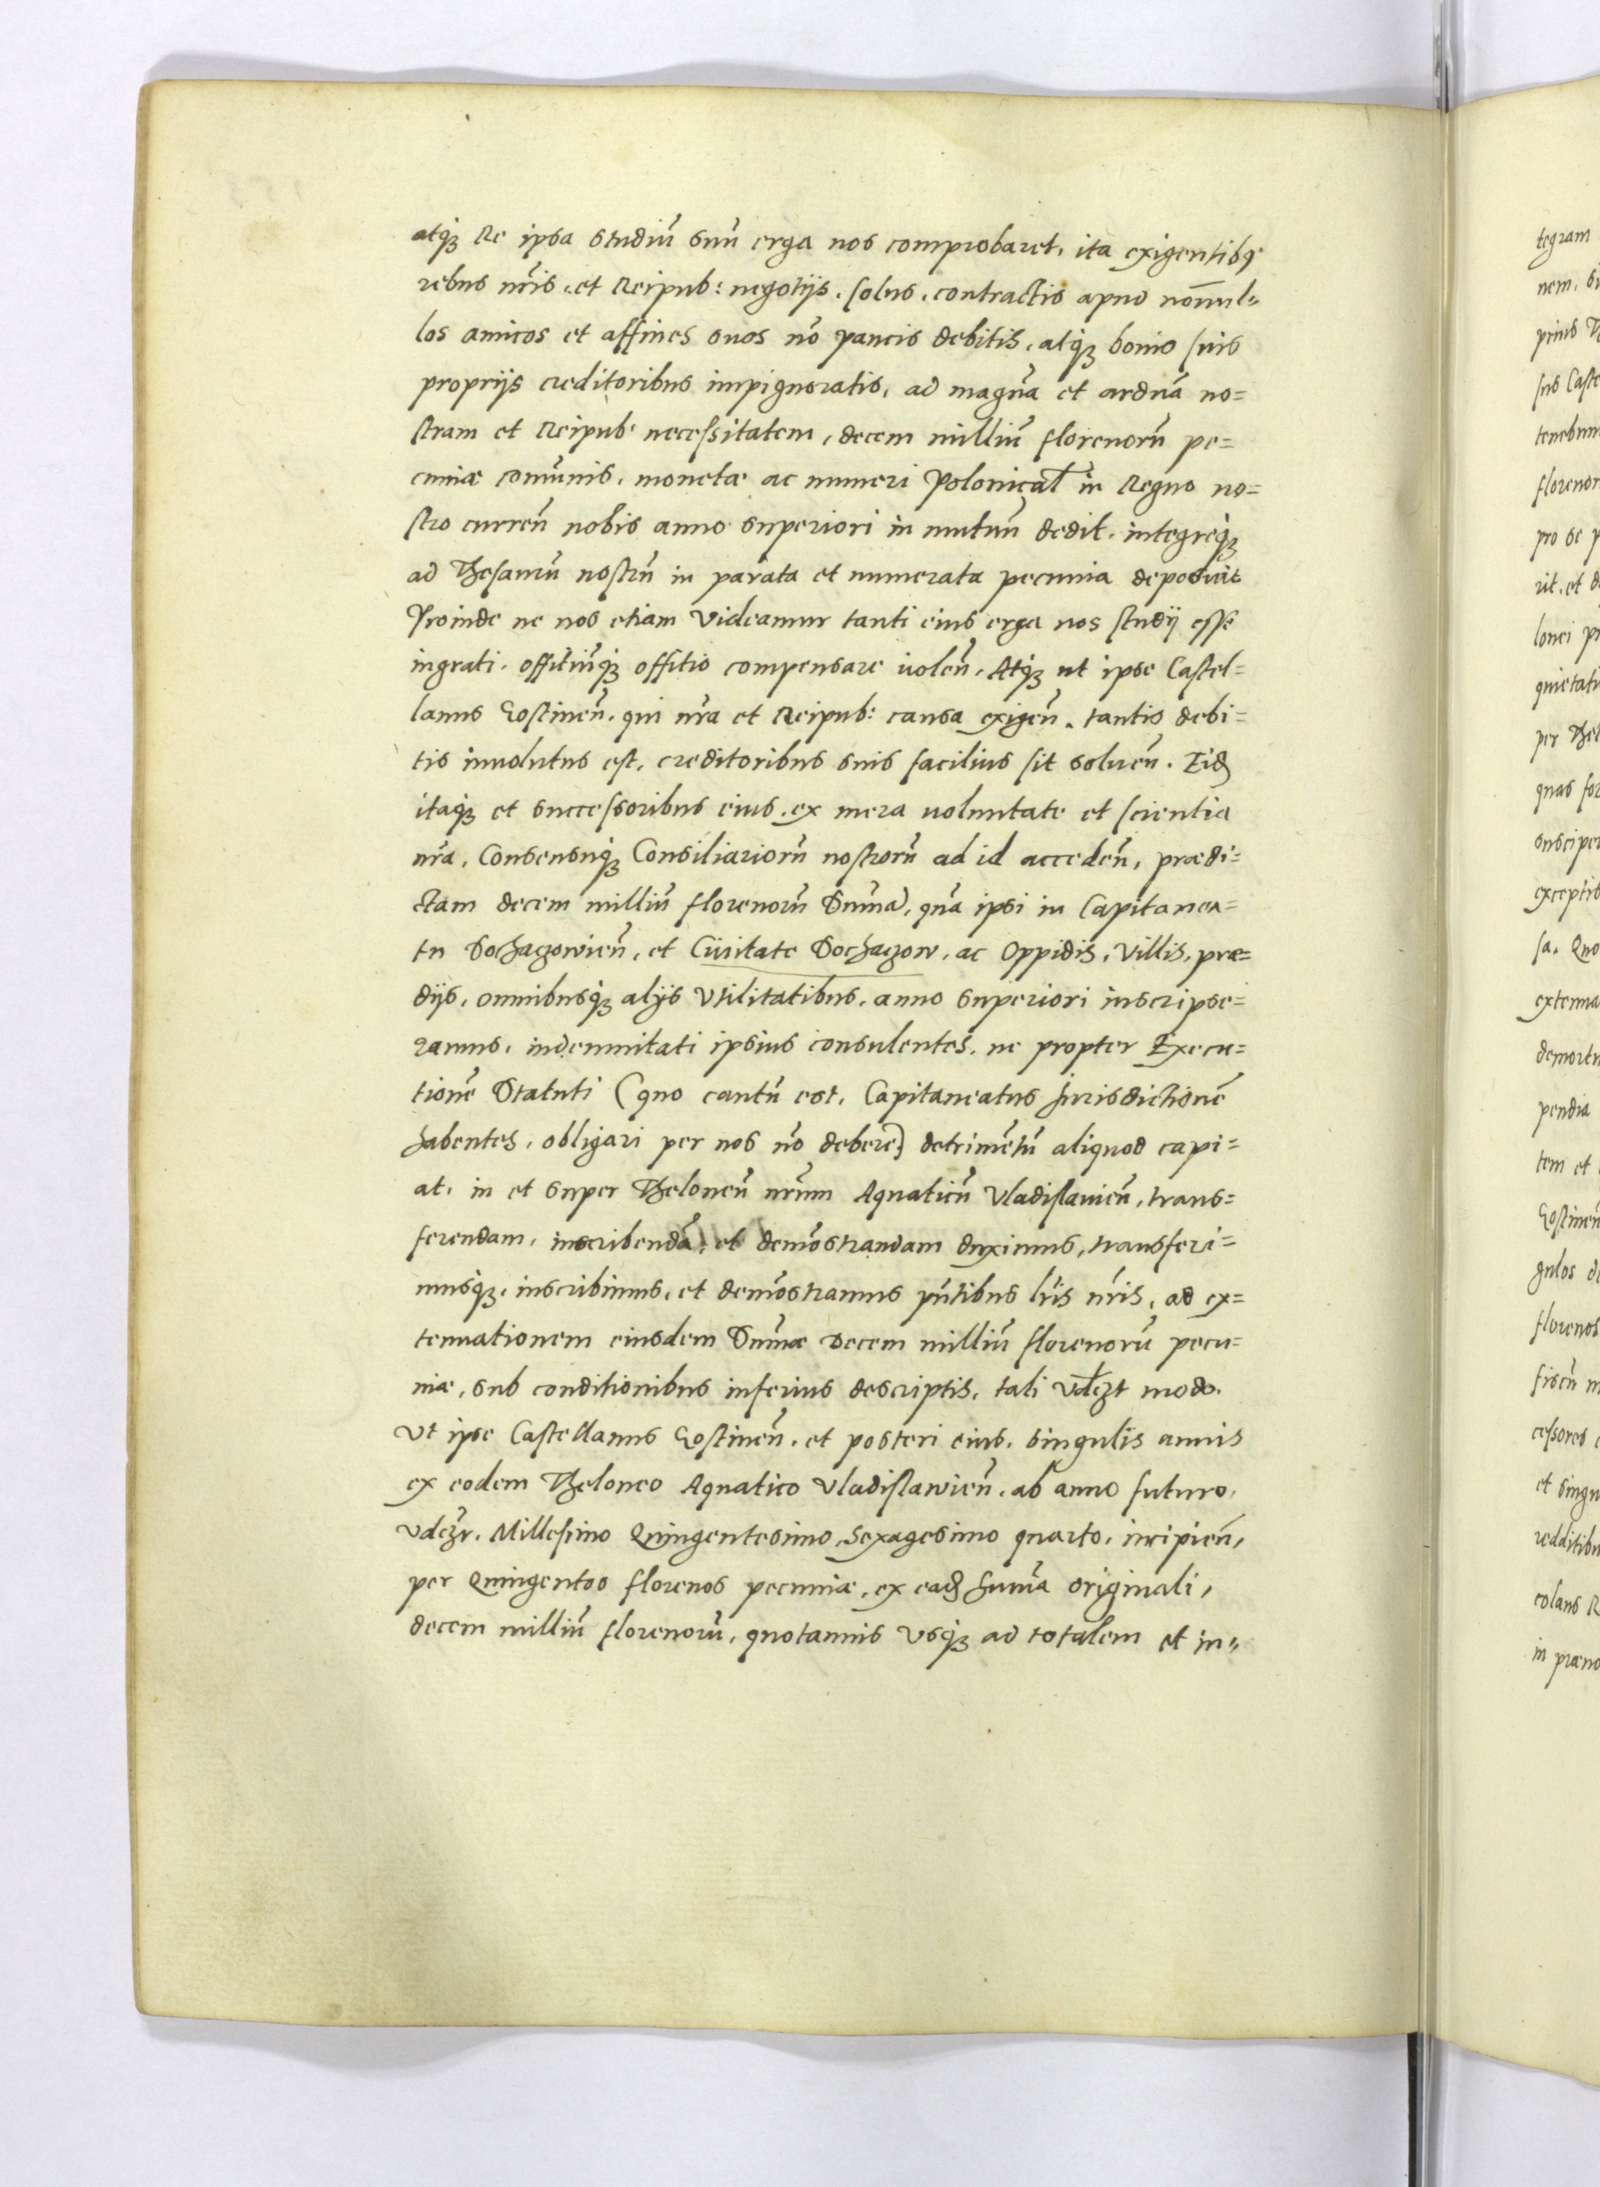 atq́ꝫ Re ipsa studiũ suũ erga nos comprobaret, ita exigentibꝰ
rebus nr̃is, et Reipub: negotijs, solus, contractis apud nõnul=
los amicos et affines suos nõ paucis debitis, atq́ꝫ bonis suis
proprijs creditoribus impignoratis, ad magnã et arduã no=
stram et Reipub: necessitatem, decem milliũ florenorũ pe=
cuniæ com̃unis, monetæ ac numeri Polonical̃ in Regno no=
stro curren̄ nobis anno superiori in mutuũ dedit, integreq́ꝫ
ad Thesaurũ nostrũ in parata et numerata pecunia deposuit
Proinde ne nos etiam videamur tanti eius erga nos studij esse
ingrati, offitiũq́ꝫ offitio compensare uolen̄, Atq́ꝫ ut ipse Castel=
lanus Gostinen̄, qui nr̃a et Reipub: causa exigen̄, tantis debi=
tis inuolutus est, creditoribus suis facilius sit soluen̄. Eid
itaq́ꝫ et successoribus eius, ex mera uoluntate et scientia
nr̃a, Consensuq́ꝫ Consiliariorũ nostrorũ ad id acceden̄, prædi=
ctam decem milliũ florenorũ Sum̃ã, quã ipsi in Capitanea=
tu Sochagowien̄, et Ciuitate Sochagow, ac Oppidis, Villis, præ=
dijs, omnibusq́ꝫ alijs Vtilitatibus, anno superiori inscripse=
ramus, indemnitati ipsius consulentes, ne propter Execu=
tionẽ Statuti (quo cautũ est, Capitaneatus Jurisdictionẽ
habentes, obligari per nos nõ debere) detrimẽtũ aliquod capi=
at, in et super Theloneũ nr̃um Aquaticũ Vladislauien̄, trans=
ferendam, inscribendã, et demõstrandam duximus, transferi=
musq́ꝫ, inscribimus, et demõstramus pñtibus lr̃is nr̃is, ad ex=
tenuationem eiusdem Sum̃æ decem milliũ florenorũ pecu=
niæ, sub conditionibus inferius descriptis, tali vdelzt modo.
Vt ipse Castellanus Gostinen̄, et posteri eius, singulis annis
ex eodem Theloneo Aquatico Vladislawien̄, ab anno futuro,
vdelzt, Millesimo Quingentesimo Sexagesimo quarto, incipien̄,
per Quingentos florenos pecuniæ, ex ead Sum̃a originali,
decem milliũ florenorũ, quotannis Vsq́ꝫ ad totalem et in=